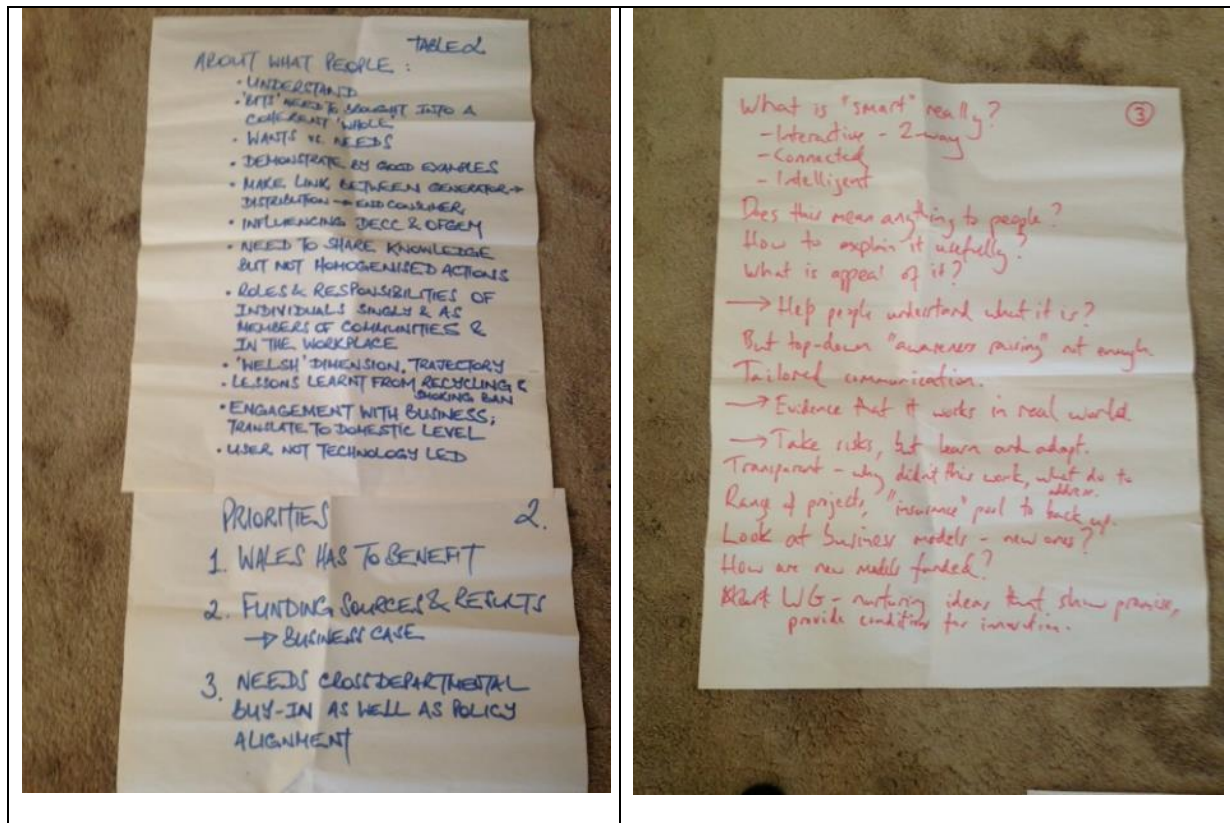 TABLE 2
ABOUT WHAT PEOPLE :
• UNDERSTAND
• 'BITS' NEED TO BROUGHT INTO A
COHERENT 'WHOLE'
• WANTS vs. NEEDS
• DEMONSTRATE BY GOOD EXAMPLES
• MAKE LINK BETWEEN GENERATOR →
DISTRIBUTION → END CONSUMER
• INFLUENCING DECC & OFGEM
• NEED TO SHARE KNOWLEDGE
BUT NOT HOMOGENISED ACTIONS
• ROLES & RESPONSIBILITIES OF
INDIVIDUALS SINGLY & AS
MEMBERS OF COMMUNITIES &
IN THE WORKPLACE
• 'WELSH' DIMENSION, TRAJECTORY
• LESSONS LEARNT FROM RECYCLING &
SMOKING BAN
• ENGAGEMENT WITH BUSINESS;
TRANSLATE TO DOMESTIC LEVEL
• USER NOT TECHNOLOGY LED
PRIORITIES 2.
1. WALES HAS TO BENEFIT
2. FUNDING SOURCES & RESULTS
→ BUSINESS CASE
3. NEEDS CROSS DEPARTMENTAL
BUY-IN AS WELL AS POLICY
ALIGNMENT
3
What is "smart" really?
- Interactive - 2-way
- Connected
- Intelligent
Does this mean anything to people?
How to explain it usefully?
What is appeal of it?
→ Help people understand what it is?
But top-down "awareness raising" not enough.
Tailored communication.
→ Evidence that it works in real world
→ Take risks, but learn and adapt.
Transparent - why didn't this work, what do to
address.
Range of projects, "insurance" pool to back up.
Look at business models - new ones?
How are new models funded?
WG - nurturing ideas that show promise,
provide conditions for innovation.